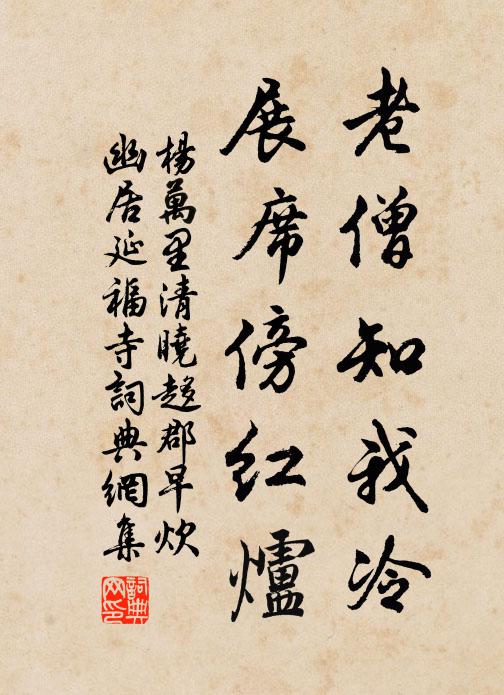 老僧知我冷
展席傍紅爐
楊萬里清曉趍郡早炊
幽居延福寺詞典網集
詞典網印